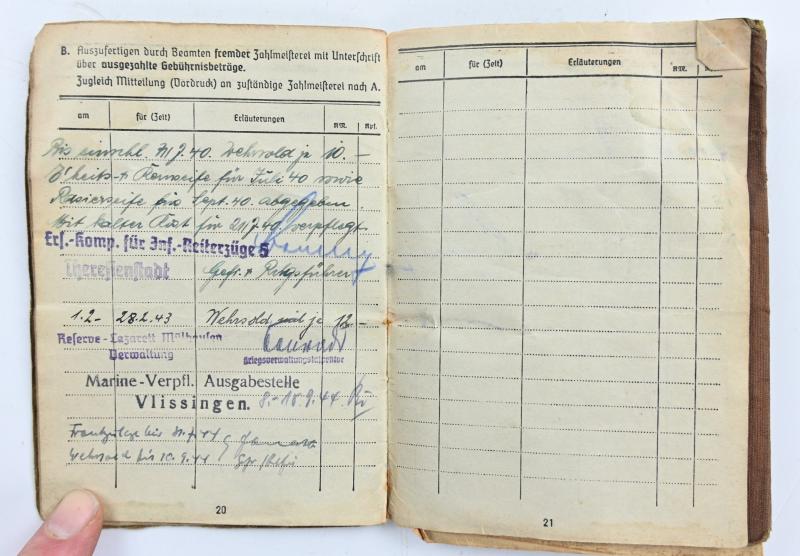 B. Auszufertigen durch Beamten fremder Zahlmeisterei mit Unterschrift
über ausgezahlte Gebührnisbeträge.
Zugleich Mitteilung (Vordruck) an zuständige Zahlmeisterei nach A.
am für (Zeit) Erläuterungen RM. Rpf.
Bis einschl. 31/7.40. Wehrsold je 10.–
E'heits- + Kernseife für Juli 40 sowie
Rasierseife bis Sept. 40. abgegeben.
Mit kalter Kost für 21/7.40. verpflegt
Ers.-Komp. für Inf.-Reiterzüge
Theresienstadt
Gefr. +
1.2.- 28.2.43 Wehrsold mit je 12.–
Reserve-Lazarett
Verwaltung
Marine-Verpfl. Ausgabestelle
Vlissingen. 8.-10.9.44
Frontzulage bis
Wehrsold bis 10.9.44
20
am für (Zeit) Erläuterungen RM.
21